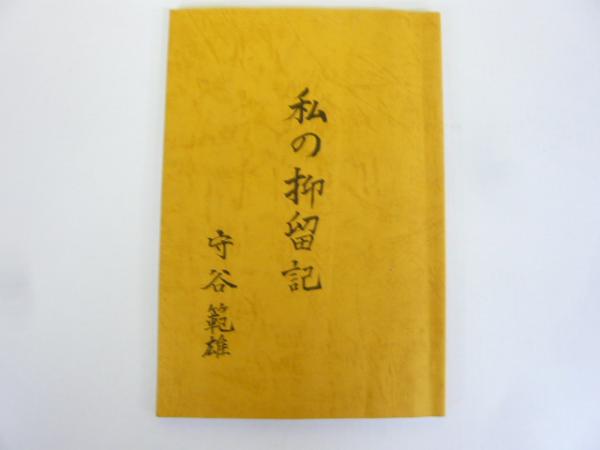 私の抑留記
守谷範雄